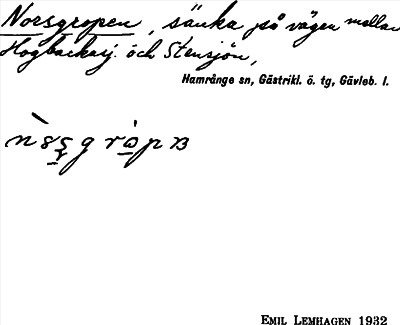 Norsgropen, sänka på vägen mellan
Hogbackasj. och Stensjön,
Hamrånge sn, Gästrikl. ö. tg, Gävleb. l.
EMIL LEMHAGEN 1932